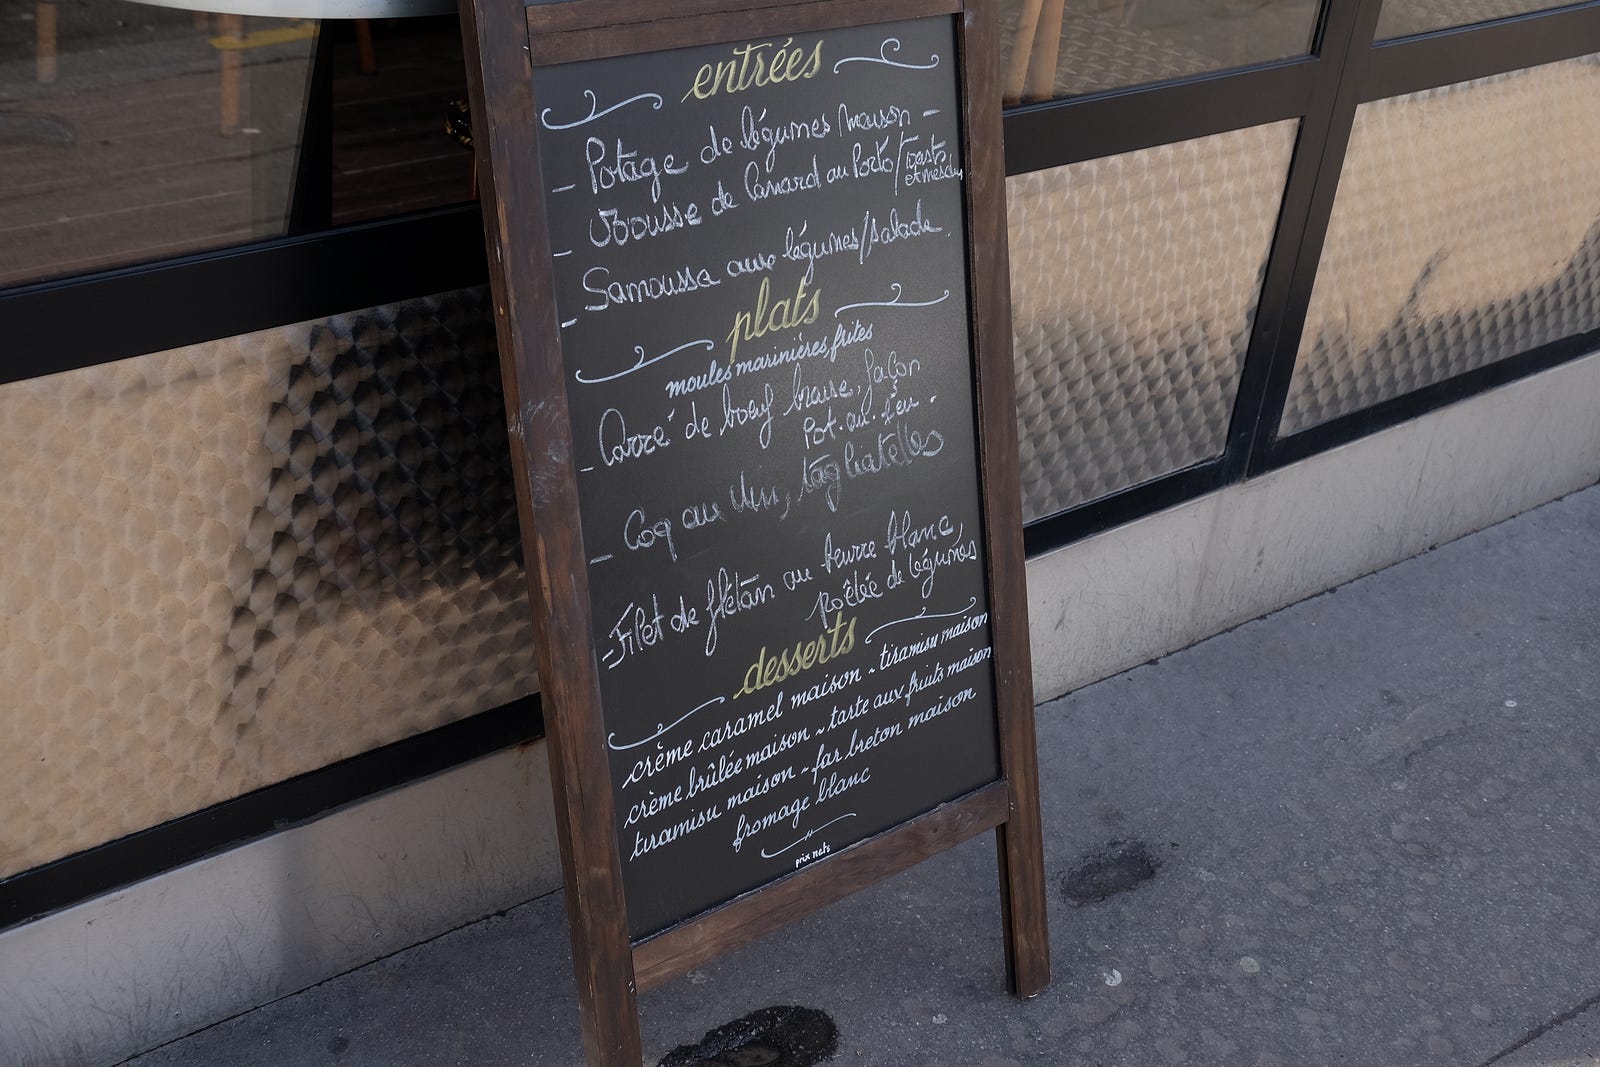 entrées
- Potage de légumes maison -
- Mousse de Canard au Porto/toasts
et mesclun
- Samoussa aux légumes/salade
plats
moules marinières, frites
- Carré de boeuf braisé, façon
Pot-au-feu.
- Coq au Vin, tagliatelles
- Filet de flétan au beurre blanc,
poêlée de légumes
desserts
crème caramel maison ~ tiramisu maison
crème brûlée maison ~ tarte aux fruits maison
tiramisu maison ~ far breton maison
fromage blanc
prix nets